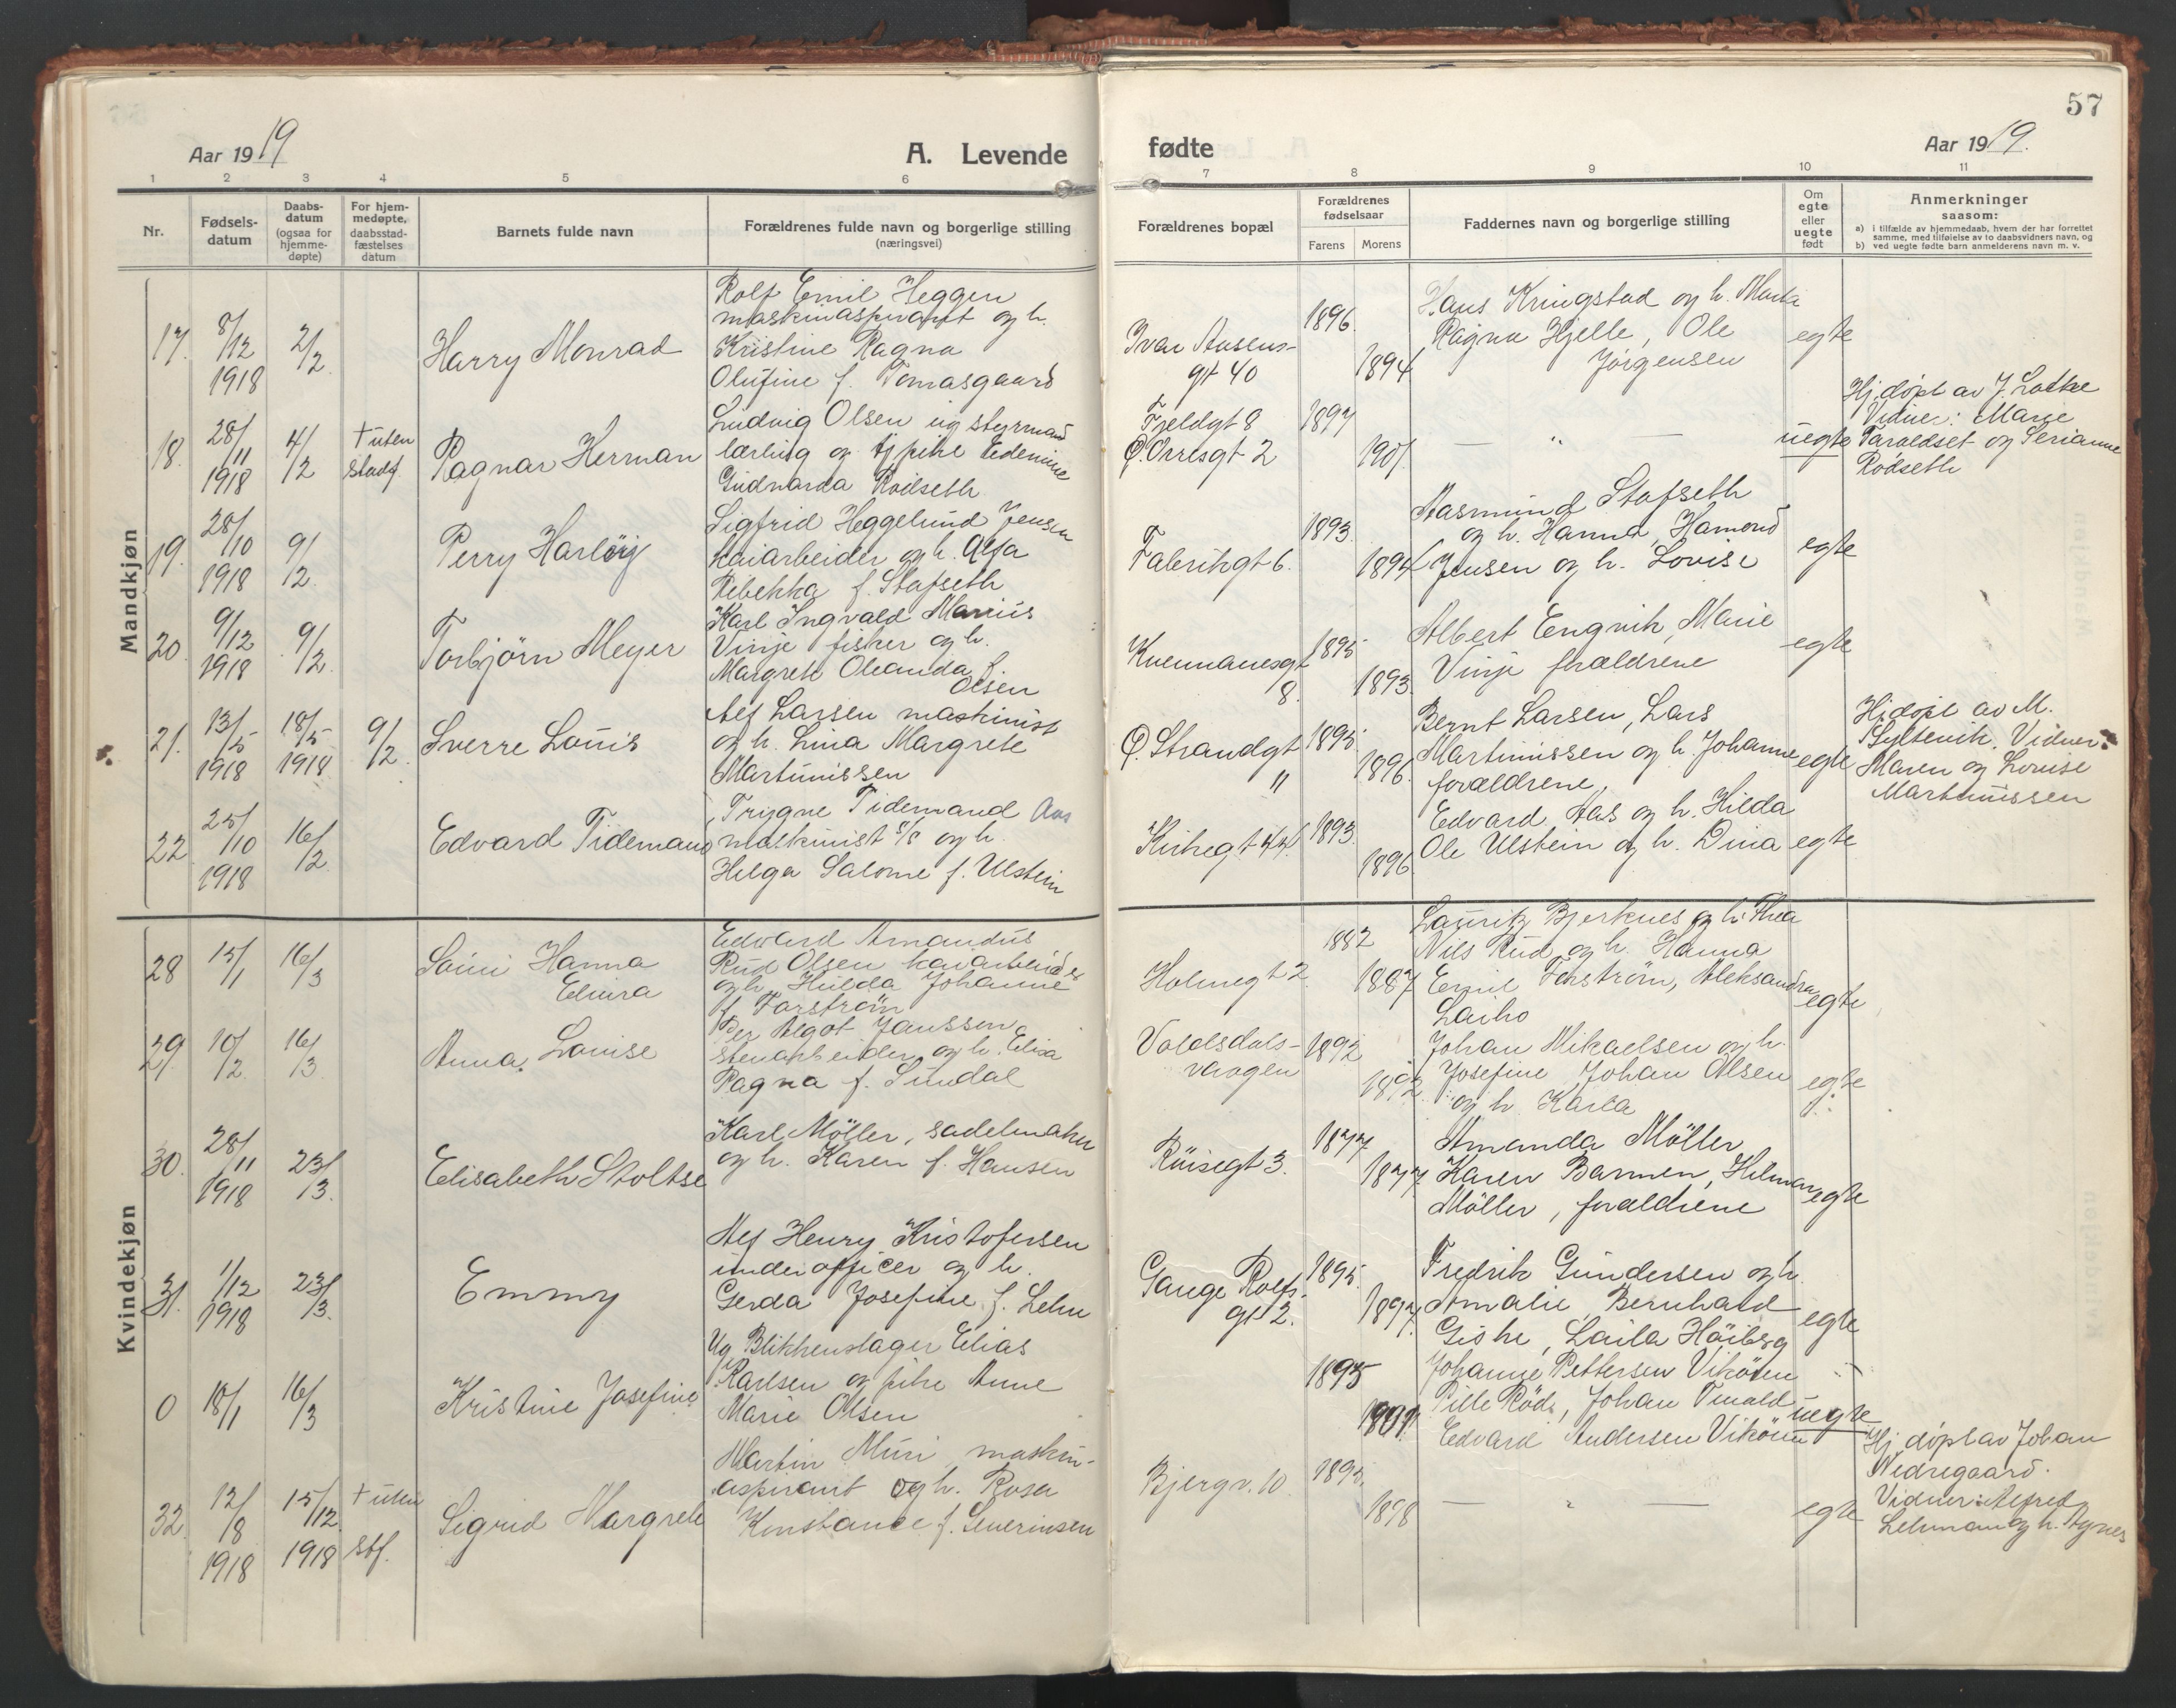 57
Aar 1919
A. Levende
fødte
Aar 1919.
1 2 3 4 5 6 7 8 9 10 11
Nr.
Fødsels-
datum
Daabs-
datum
(ogsaa for
hjemme-
døpte)
For hjem-
medøpte,
daabsstad-
fæstelses
datum
Barnets fulde navn
Forældrenes fulde navn og borgerlige stilling
(næringsvei)
Forældrenes bopæl
Forældrenes
fødselsaar
Farens Morens
Faddernes navn og borgerlige stilling
Om
egte
eller
uegte
født
Anmerkninger
saasom:
a) i tilfælde av hjemmedaab, hvem der har forrettet
samme, med tilføielse av to daabsvidners navn, og
b) ved uegte fødte barn anmelderens navn m. v.
Mandkjøn
17. 8/12 1918 2/2
Harry Monrad
Rolf Emil Heggen
maskinaspirant og h.
Kristine Ragna
Olufine f. Tomasgaard
Ivar Aasens-
gt 40
1896.
1894
Hans Kringstad og h. Marta
Ragna Hjelle, Ole
Jörgensen
egte
18. 28/11 1918 4/2
+ uten
stadf.
Ragnar Herman
Ludvig Olsen ug styrmand
lærling og tj pike Edenine
Gudvarda Rödseth
Fjeldgt 8
Ø. Orresgt 2
1897
1901
— " —
uegte
Hj.döpt av J. Lothe
Vidner: Marie
Taraldset og Serianne
Rödseth
19. 28/10 1918 9/2.
Perry Harlöig
Sigfrid Heggelund Jensen
kaiarbeider og h. Alfa
Rebekka f. Stafseth
Fabrikgt 6.
1893.
1894
Aasmund Stafseth
og h. Hanna, Hamond
Jensen og h. Lovise
egte
20. 9/12 1918 9/2.
Torbjörn Meyer
Karl Ingvald Marius
Vinje fisker og h.
Margrete Oleanda f.
Olsen
8.
1895
1893.
Albert Engvik, Marie
Vinje forældrene
egte
21. 13/5 1918 18/5 1918 9/2.
Sverre Louis
Alf Larsen maskinist
og h. Lina Margrete
Martinussen
Ø. Strandgt
11
1895.
1896.
Bernt Larsen, Lars
Martinussen og h. Johanne
forældrene
egte
Hj.döpt av M.
Syltevik. Vidner:
Maren og Lovise
Martinussen
22 25/10 1918 16/2.
Edvard Tidemand
Trygve Tidemand Aas
maskinist s/s og h.
Helga Salome f. Ulstein
Kirkegt 44.
1893.
1896
Edvard Aas og h. Hilda
Ole Ulstein og h. Dina
egte
Kvindekjøn
28 15/1 16/3
Saimi Hanna
Elvira
Edvard Amandus
Rud Olsen kaiarbeider
og h. Hulda Johanne
f. Forström
Holmegt 2
1882
1887
Lauritz Bjerknes og h. Thea
Nils Rud og h. Hanna
Emil Forström, Aleksandra
Laiho
egte
29. 10/2. 16/3
Anna Louise
Per Algot Janssen
stenarbeider og h. Elisa
Ragna f. Sundal
Voldsdals-
vaagen
1892
1892
Johan Mikaelsen og h.
Josefine Johan Olsen
og h. Karla
egte
30. 28/11 1918 23/3.
Elisabeth Stoltse
Karl Möller, sadelmaker
og h. Karen f. Hansen
1877
1877
Amanda Möller
Karen Barmen, Hilmar
Möller, forældrene
egte
31. 1/12 1918 23/3.
Emmy
Alf Henry Kristofersen
underofficer og h.
Gerda Josefine f. Lehn
Gange Rolfs
gt 2.
1895.
1897.
Fredrik Gundersen og h.
Amalie Bernhard
Giske, Laila Höiberg
egte
0 18/1 16/3
Kristine Josefine
Ug Blikkenslager Elias
Karlsen og pike Anne
Marie Olsen
1895
1901
Johanne Pettersen Vikören
Pille Röds, Johan Tinvald
Edvard Andersen Vikören
uegte
32. 12/8 1918 15/12. 1918
+ uten
stf.
Sigrid Margrete
Martin Muri maskin-
aspirant og h. Rosa
Konstance f. Severinsen
Bjergv. 10
1895.
1898
— " —
egte
Hj.döpt av Johan
Nedregaard.
Vidner: Alfred
Lehman og h. Agnes